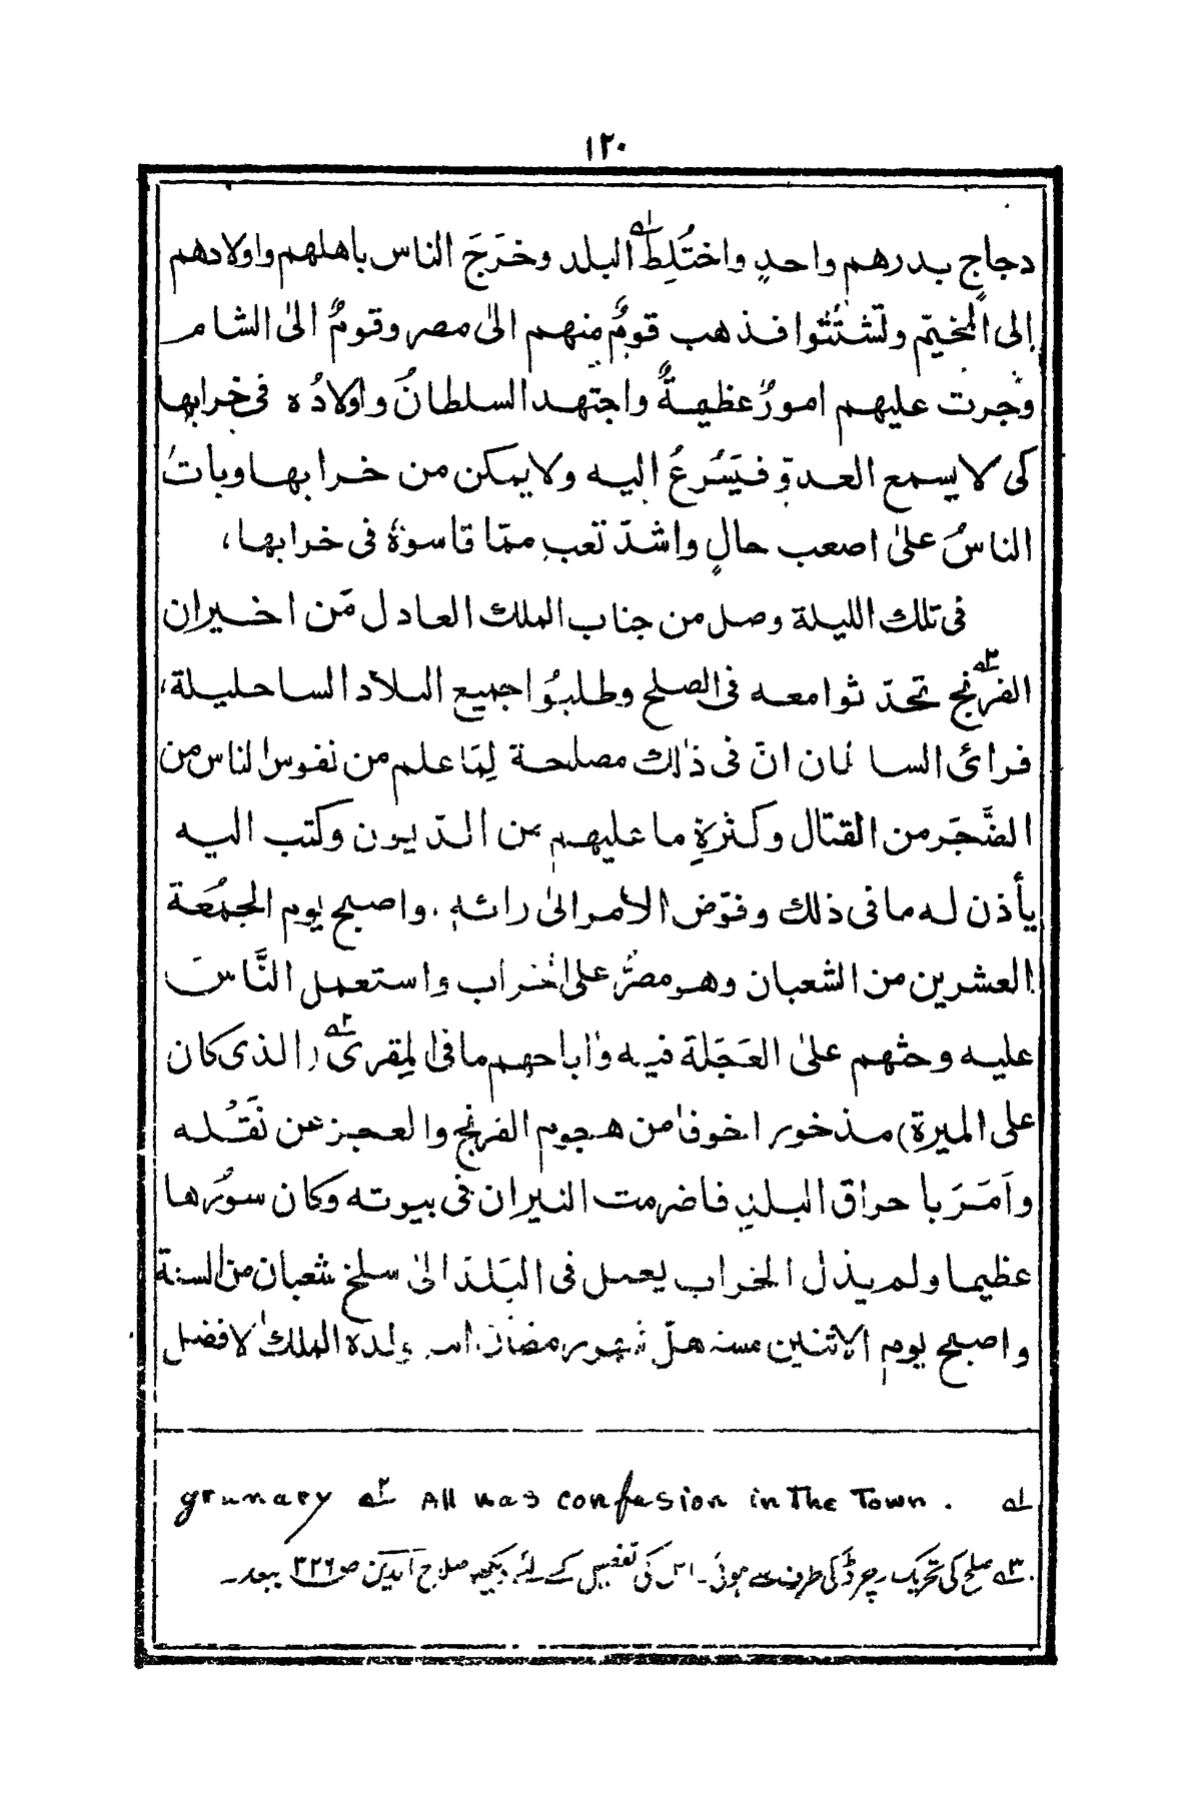 ۱۲۰
دجاجٍ بدرهمٍ واحدٍ واختُلِطَ له البلد وخرَجَ الناس باهلهم واولادهم
إلى المخيّم وتشتّتُوا فذهب قومٌ منهم الىٰ مصر وقومٌ الىٰ الشام
وجرت عليهم امورٌ عظيمةٌ واجتهد السلطانُ واولادُه فى خرابها
كى لا يسمع العدوّ فيَسْرعُ اليه ولا يمكن من خرابها وبات
الناسُ علىٰ اصعب حالٍ واشدّ تعبٍ ممّا قاسوهُ فى خرابها،
فى تلك الليلة وصل من جناب الملك العادل مَن اخبران
الفرنج ۳ه تحدّ ثوا معه فى الصلح وطلبُوا جميع البلاد الساحليلة،
فرائ السا نان انّ فى ذٰلك مصلحة لِمَا علم من نفوس الناس من
الضَّجَر من القتال وكثرةِ ما عليهم من الديون وكتب اليه
يأذن له ما فى ذلك وفوّض الأمر الىٰ رائه. واصبح يوم الجمُعَة
العشرين من الشعبان وهو مصرٌّ على الخراب واستعمل النَّاسَ
عليه وحثهم علىٰ العَجَلة فيه واباحهم ما فى المقرى ۲ه (الذى كان
على الميرة) مذخورا خوفا من هجوم الفرنج والعجز عن نَقْله
وأمَرَ با حراق البلد فاضرمت النيران فى بيوته وكان سورُها
عظيما ولم يذل الخراب يعمل فى البَلد الىٰ سلخ شعبان من السنة
واصبح يوم الاثنين مستهلّ شهر رمضان ولده الملك لافضل
له All was confusion in The Town . ۲ه granary
۳ه صلح کی تحریک رچرڈ کی طرف سے ہوئی۔ اس کی تفصیل کے لئے دیکھیہ صلاح الدین ص ۳۲۶ ببعد۔